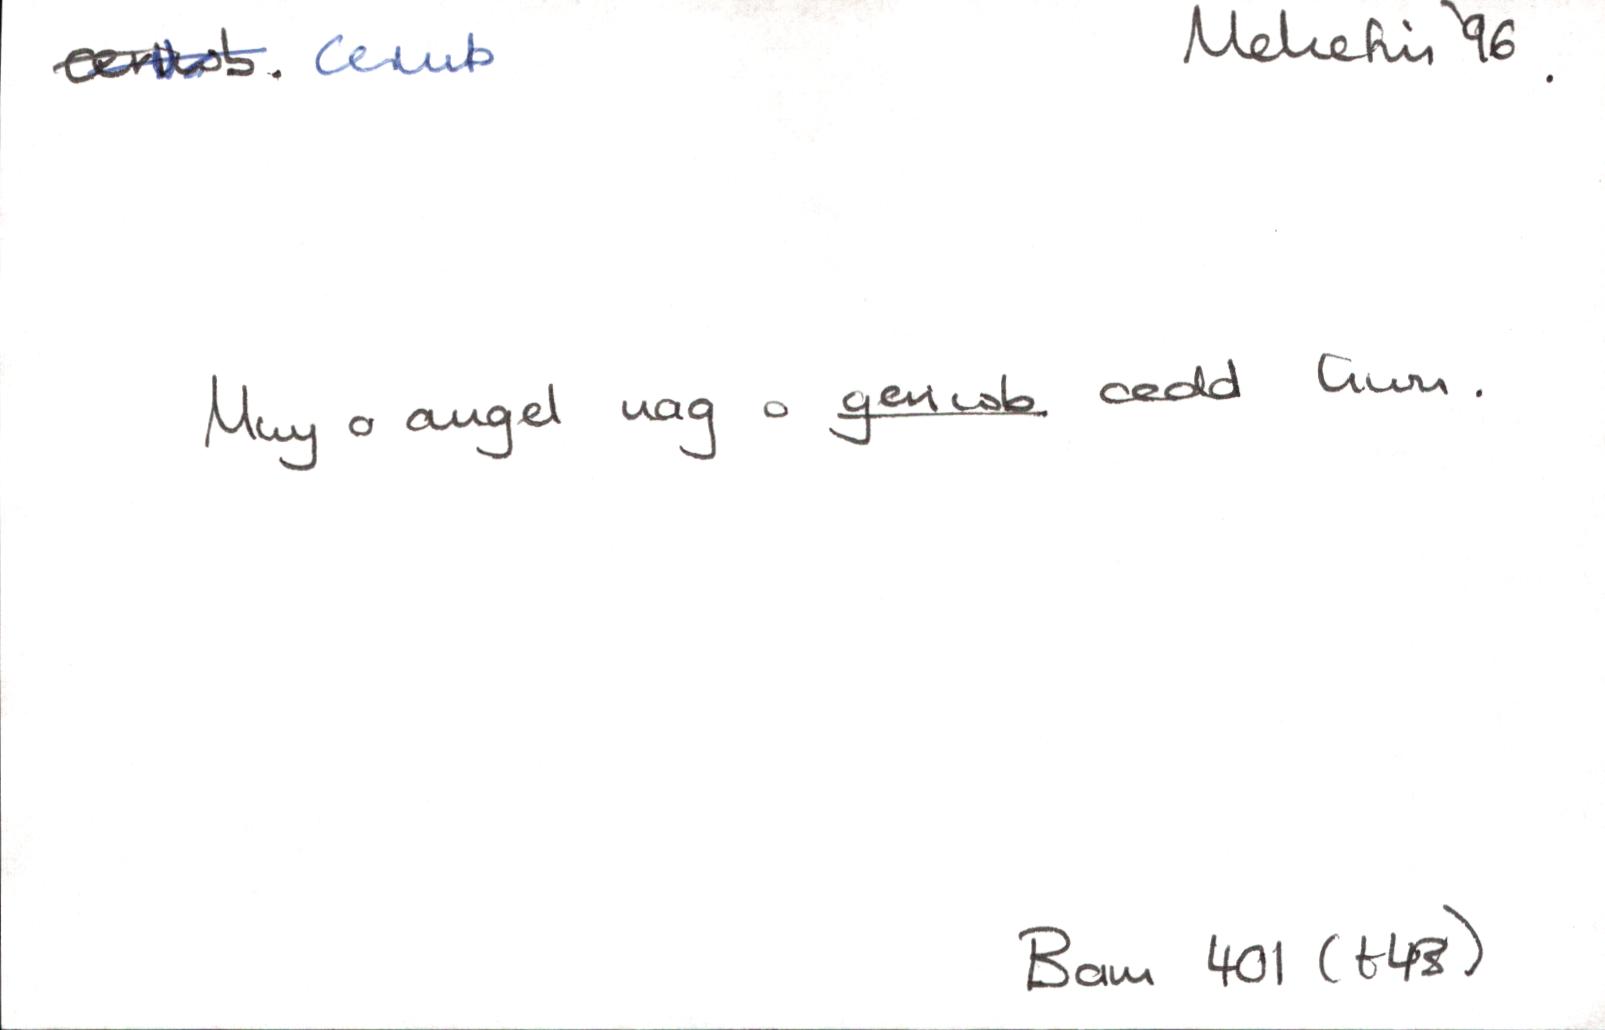 ceriwb. Cerub Mehefin '96.
Mwy o angel nag o geriwb oedd
Barn 401 (t48)